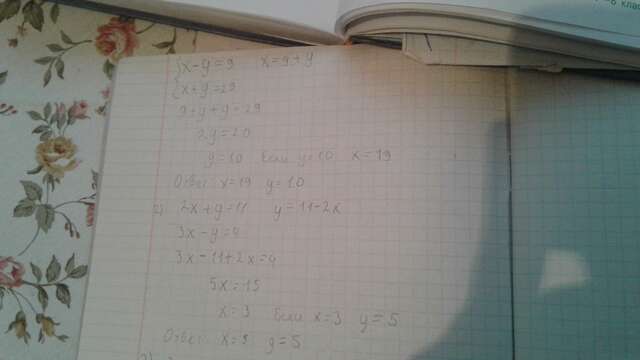 {x-y=9 x=9+y
{x+y=29
9+y+y=29
2y=20
y=10 Если y=10 x=19
Ответ: x=19 y=10
2) 2x+y=11 y=11-2x
3x-y=4
3x-11+2x=4
5x=15
x=3 Если x=3 y=5
Ответ: x=3 y=5